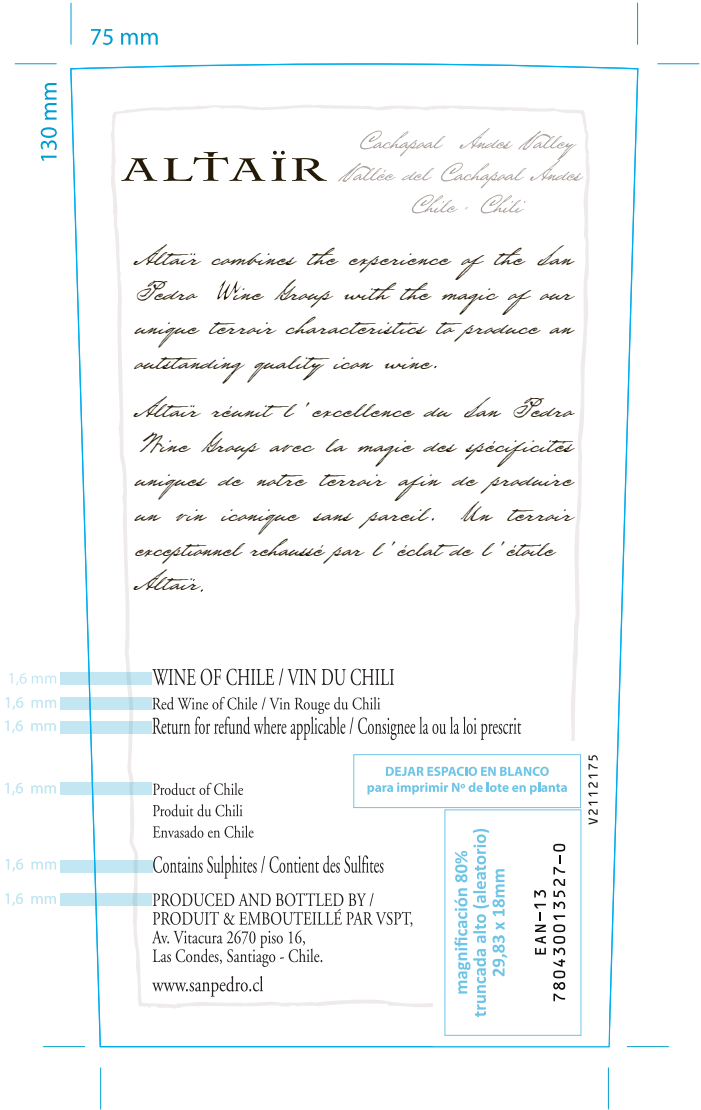 75 mm
130 mm
ALTAÏR
Cachapoal Andes Valley
Vallée del Cachapoal Andes
Chile - Chili
Altaïr combines the experience of the San
Pedro Wine Group with the magic of our
unique terroir characteristics to produce an
outstanding quality icon wine.
Altaïr réunit l'excellence du San Pedro
Wine Group avec la magie des spécificités
uniques de notre terroir afin de produire
un vin iconique sans pareil. Un terroir
exceptionnel rehaussé par l'éclat de l'étoile
Altaïr.
1,6 mm
WINE OF CHILE / VIN DU CHILI
1,6 mm
Red Wine of Chile / Vin Rouge du Chili
1,6 mm
Return for refund where applicable / Consignee la ou la loi prescrit
DEJAR ESPACIO EN BLANCO
para imprimir Nº de lote en planta
V2112175
1,6 mm
Product of Chile
Produit du Chili
Envasado en Chile
1,6 mm
Contains Sulphites / Contient des Sulfites
1,6 mm
PRODUCED AND BOTTLED BY /
PRODUIT & EMBOUTEILLÉ PAR VSPT,
Av. Vitacura 2670 piso 16,
Las Condes, Santiago - Chile.
www.sanpedro.cl
magnificación 80%
truncada alto (aleatorio)
29,83 x 18mm
EAN-13
780430013527-0